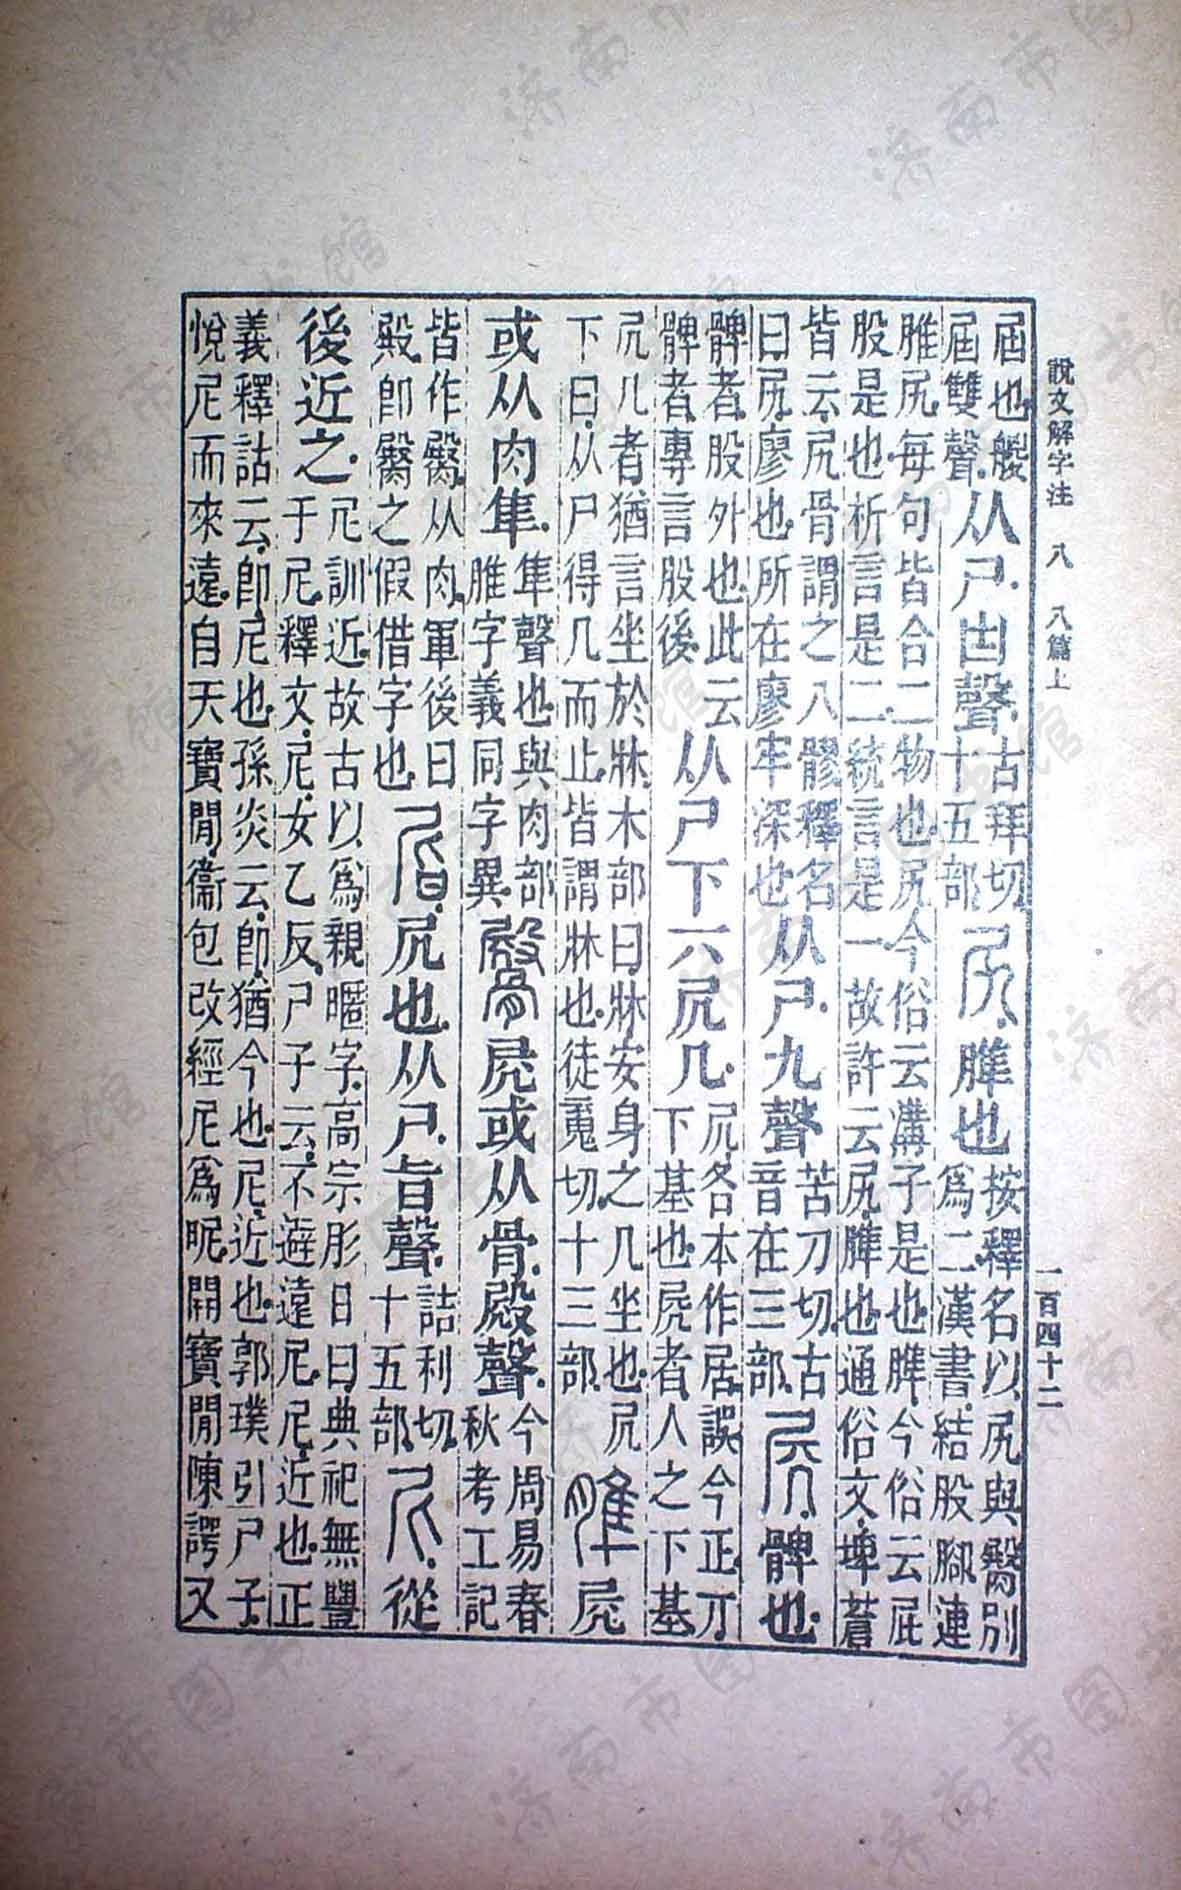 說文解字注 八 八篇上 一百四十二
屆也艐屆雙聲从尸凷聲古拜切十五部尻脽也按釋名以尻與臀別爲二漢書結股腳連
脽尻每句皆合二物也尻今俗云溝子是也脽今俗云屁股是也析言是二統言是一故許云尻脽也通俗文埤蒼
皆云尻骨謂之八髎釋名曰尻廖也所在廖牢深也从尸九聲苦刀切古音在三部𡱂髀也
髀者股外也此云髀者專言股後从尸下丌凥几凥各本作居誤今正丌下基也𡱂者人之下基
凥几者猶言坐於牀木部曰牀安身之几坐也凥下曰从尸得几而止皆謂牀也徒䰟切十三部脽𡱂
或从肉隼隼聲也與肉部脽字義同字異臀𡱂或从骨殿聲今周易春秋考工記
皆作臀从肉軍後曰殿卽臀之假借字也𡰪尻也从尸旨聲詰利切十五部尼從
後近之尼訓近故古以爲親暱字高宗肜日曰典祀無豐于尼釋文尼女乙反尸子云不避遠尼尼近也正
義釋詁云卽尼也孫炎云卽猶今也尼近也郭璞引尸子悅尼而來遠自天寶閒衞包改經尼爲昵開寶閒陳諤又
济南市图书馆